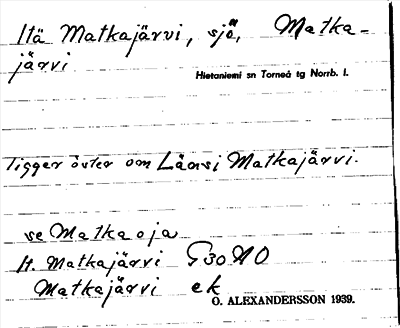 Itä Matkajärvi, sjö, Matka-
järvi
Hietaniemi sn Torneå tg Norrb. l.
ligger öster om Länsi Matkajärvi.
se Matkaoja
H. Matkajärvi G30 NO
Matkajärvi ek
O. ALEXANDERSSON 1939.